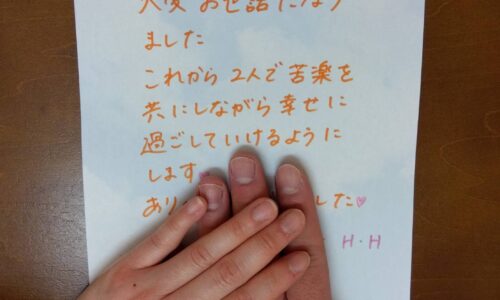 大変 お世話になり
ました
これから 2人で苦楽を
共にしながら幸せに
過ごしていけるように
します♥
あり した♥
H・H